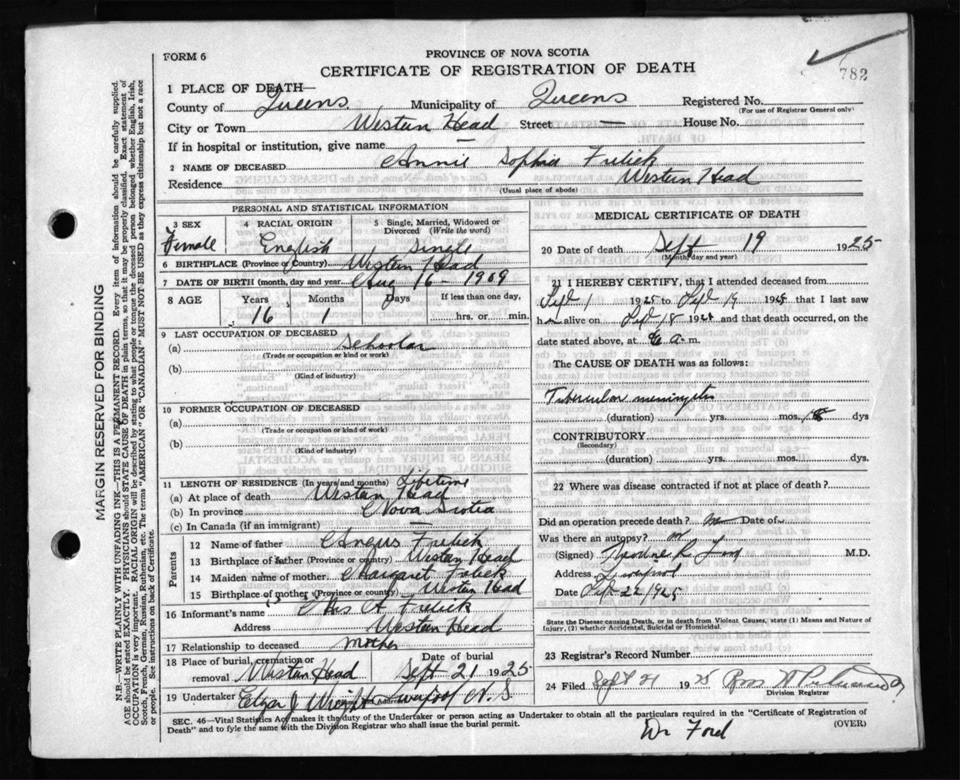 FORM 6
PROVINCE OF NOVA SCOTIA
CERTIFICATE OF REGISTRATION OF DEATH
782
1 PLACE OF DEATH—
County of Queens. Municipality of Queens Registered No.
(For use of Registrar General only)
City or Town Western Head Street — House No.
If in hospital or institution, give name —
2 NAME OF DECEASED Annie Sophia Frelick
Residence Western Head
(Usual place of abode)
PERSONAL AND STATISTICAL INFORMATION
3 SEX 4 RACIAL ORIGIN 5 Single, Married, Widowed or Divorced (Write the word)
Female English Single
6 BIRTHPLACE (Province or Country) Western Head
7 DATE OF BIRTH (month, day and year) Aug 16 - 1909
8 AGE Years Months Days If less than one day,
16 1 hrs. or min.
9 LAST OCCUPATION OF DECEASED
(a) Schoolar
(Trade or occupation or kind of work)
(b)
(Kind of industry)
10 FORMER OCCUPATION OF DECEASED
(a)
(Trade or occupation or kind of work)
(b)
(Kind of industry)
11 LENGTH OF RESIDENCE (In years and months) Lifetime
(a) At place of death Western Head
(b) In province Nova Scotia
(c) In Canada (if an immigrant) —
Parents
12 Name of father Angus Frelick
13 Birthplace of father (Province or country) Western Head
14 Maiden name of mother Margaret Frelick
15 Birthplace of mother (Province or country) Western Head
16 Informant's name Mrs A Frelick
Address Western Head
17 Relationship to deceased Mother
18 Place of burial, cremation or removal Western Head Date of burial Sept 21 1925
19 Undertaker Elza J Wright Address Liverpool N.S.
MEDICAL CERTIFICATE OF DEATH
20 Date of death Sept. 19 1925
(Month, day and year)
21 I HEREBY CERTIFY, that I attended deceased from
Sept 1 1925 to Sept 19 1925 that I last saw
h alive on Sept 18 192 and that death occurred, on
date stated above, at a m.
The CAUSE OF DEATH was as follows:
Tubercular meningitis
(duration) yrs. mos. 18 dys
CONTRIBUTORY
(Secondary)
(duration) yrs. mos. dys
22 Where was disease contracted if not at place of death?
Did an operation precede death? no Date of
Was there an autopsy? no
(Signed) M.D.
Address Liverpool
Date Sept 22/1925
State the Disease causing Death, or in death from Violent Causes, state (1) Means and Nature of Injury, (2) whether Accidental, Suicidal or Homicidal.
23 Registrar's Record Number
24 Filed Sept 1925
Division Registrar
SEC. 46—Vital Statistics Act makes it the duty of the Undertaker or person acting as Undertaker to obtain all the particulars required in the "Certificate of Registration of
Death" and to fyle the same with the Division Registrar who shall issue the burial permit. (OVER)
Dr Ford
MARGIN RESERVED FOR BINDING
N.B.—WRITE PLAINLY WITH UNFADING INK—THIS IS A PERMANENT RECORD. Every item of information should be carefully supplied.
AGE should be stated EXACTLY. PHYSICIANS should STATE CAUSE OF DEATH in plain terms, so that it may be properly classified. Exact statement of
OCCUPATION is very important. RACIAL ORIGIN will be described by stating to what people or tongue the deceased person belonged whether English, Irish,
Scotch, French, German, Russian, Ruthenian, etc. The terms "AMERICAN" or "CANADIAN" MUST NOT BE USED as they express citizenship but not a race
or people. See instructions on back of Certificate.